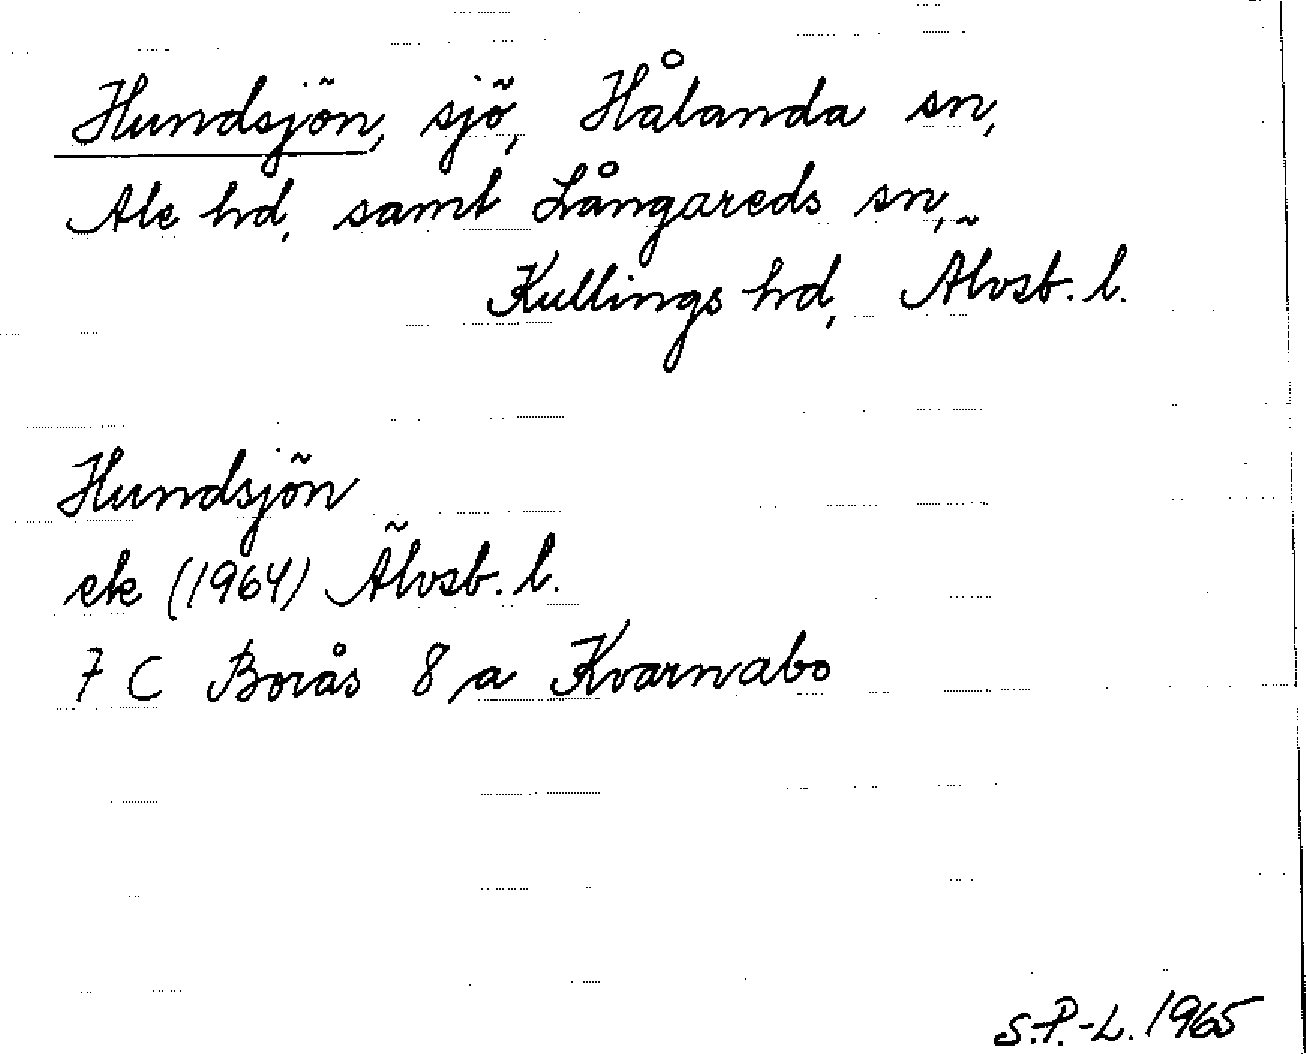 Hundsjön, sjö, Hålanda sn,
Ale hd, samt Långareds sn,
Kullings hd, Älvsb. l.
Hundsjön
ek (1964) Älvsb. l.
7 C Borås 8 a Kvarnabo
S.P.-L. 1965